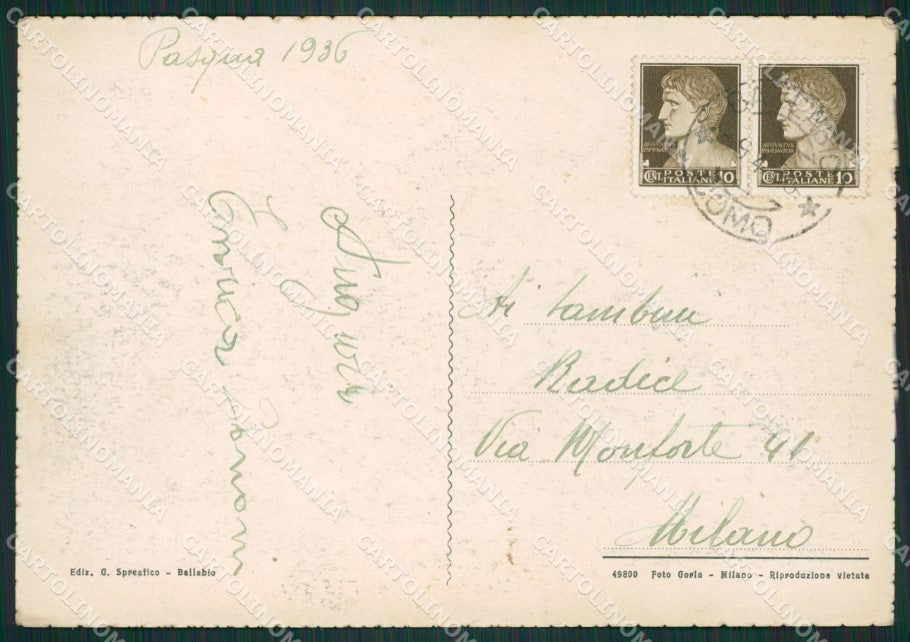 Pasqua 1936
Auguri
Enrica
AVGVSTVS
IMPERATOR
CENT. POSTE ITALIANE 10
AVGVSTVS
IMPERATOR
CENT. POSTE ITALIANE 10
COMO
Ai bambini
Radice
Via Monforte 41
Milano
Ediz. G. Spreafico - Ballabio
49899 Foto Gorla - Milano - Riproduzione vietata
CARTOLINOMANIA